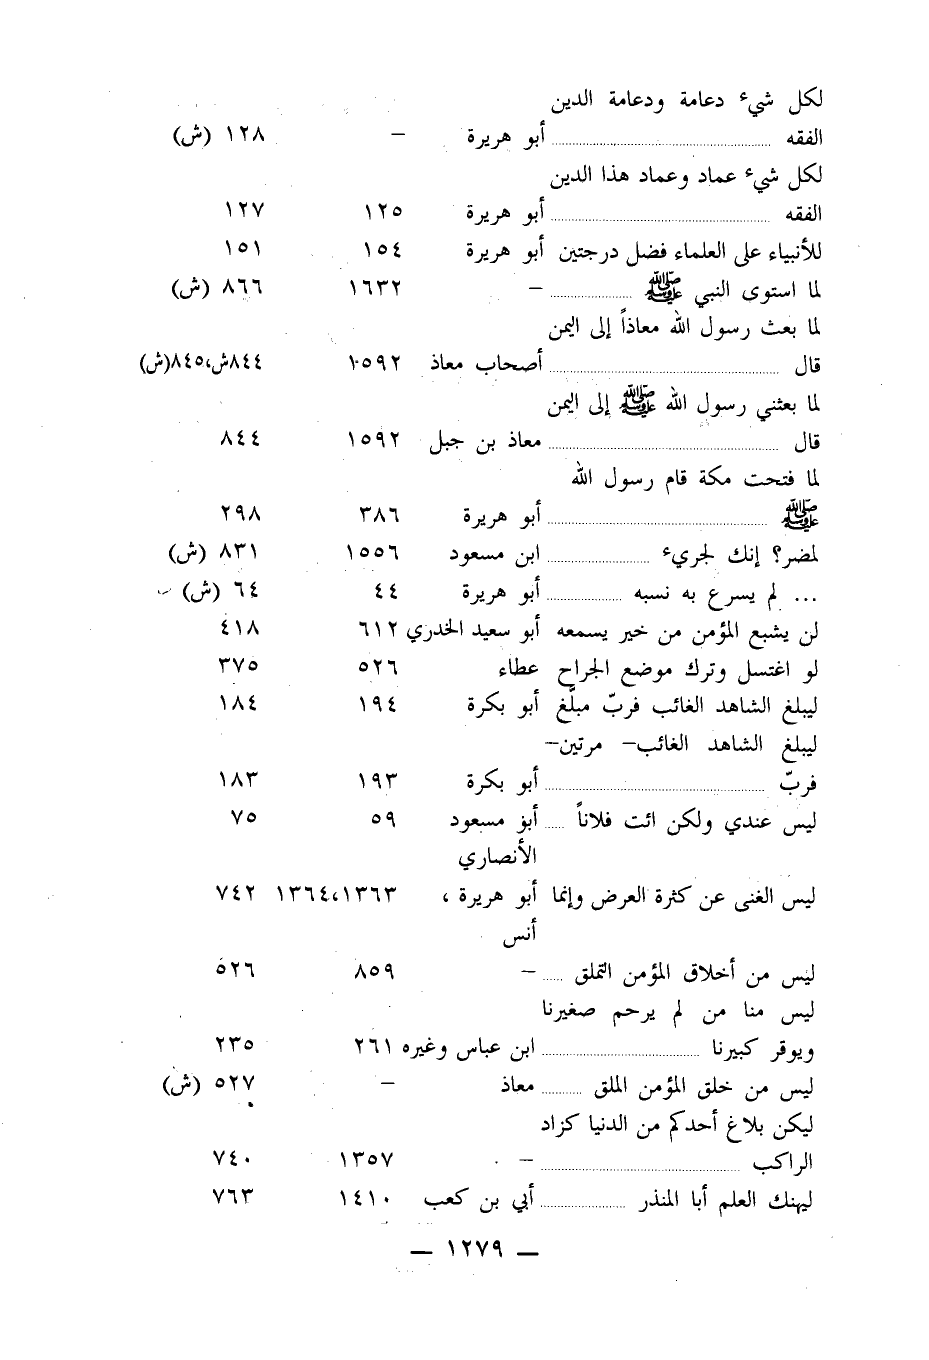 لكل شيء دعامة ودعامة الدين
الفقه ........ أبو هريرة – ١٢٨ (ش)
لكل شيء عماد وعماد هذا الدين
الفقه ........ أبو هريرة ١٢٥ ١٢٧
للأنبياء على العلماء فضل درجتين أبو هريرة ١٥٤ ١٥١
لما استوى النبي ﷺ ........ – ١٦٣٢ ٨٦٦ (ش)
لما بعث رسول الله معاذاً إلى اليمن
قال ........ أصحاب معاذ ١٠٥٩٢ ٨٤٤ش،٨٤٥(ش)
لما بعثني رسول الله ﷺ إلى اليمن
قال ........ معاذ بن جبل ١٥٩٢ ٨٤٤
لما فتحت مكة قام رسول الله
ﷺ ........ أبو هريرة ٣٨٦ ٢٩٨
لمضر؟ إنك لجريء ........ ابن مسعود ١٥٥٦ ٨٣١ (ش)
... لم يسرع به نسبه ........ أبو هريرة ٤٤ ٦٤ (ش)
لن يشبع المؤمن من خير يسمعه أبو سعيد الخدري ٦١٢ ٤١٨
لو اغتسل وترك موضع الجراح عطاء ٥٢٦ ٣٧٥
ليبلغ الشاهد الغائب فربّ مبلَّغ أبو بكرة ١٩٤ ١٨٤
ليبلغ الشاهد الغائب– مرتين–
فربّ ........ أبو بكرة ١٩٣ ١٨٣
ليس عندي ولكن ائت فلاناً ..... أبو مسعود ٥٩ ٧٥
الأنصاري
ليس الغنى عن كثرة العرض وإنما أبو هريرة ، ١٣٦٤،١٣٦٣ ٧٤٢
أنس
ليس من أخلاق المؤمن التملق ..... – ٨٥٩ ٥٢٦
ليس منا من لم يرحم صغيرنا
ويوقر كبيرنا ........ ابن عباس وغيره ٢٦١ ٢٣٥
ليس من خلق المؤمن الملق ........ معاذ – ٥٢٧ (ش)
ليكن بلاغ أحدكم من الدنيا كزاد
الراكب ........ – ١٣٥٧ ٧٤٠
ليهنك العلم أبا المنذر ........ أبي بن كعب ١٤١٠ ٧٦٣
— ١٢٧٩ —